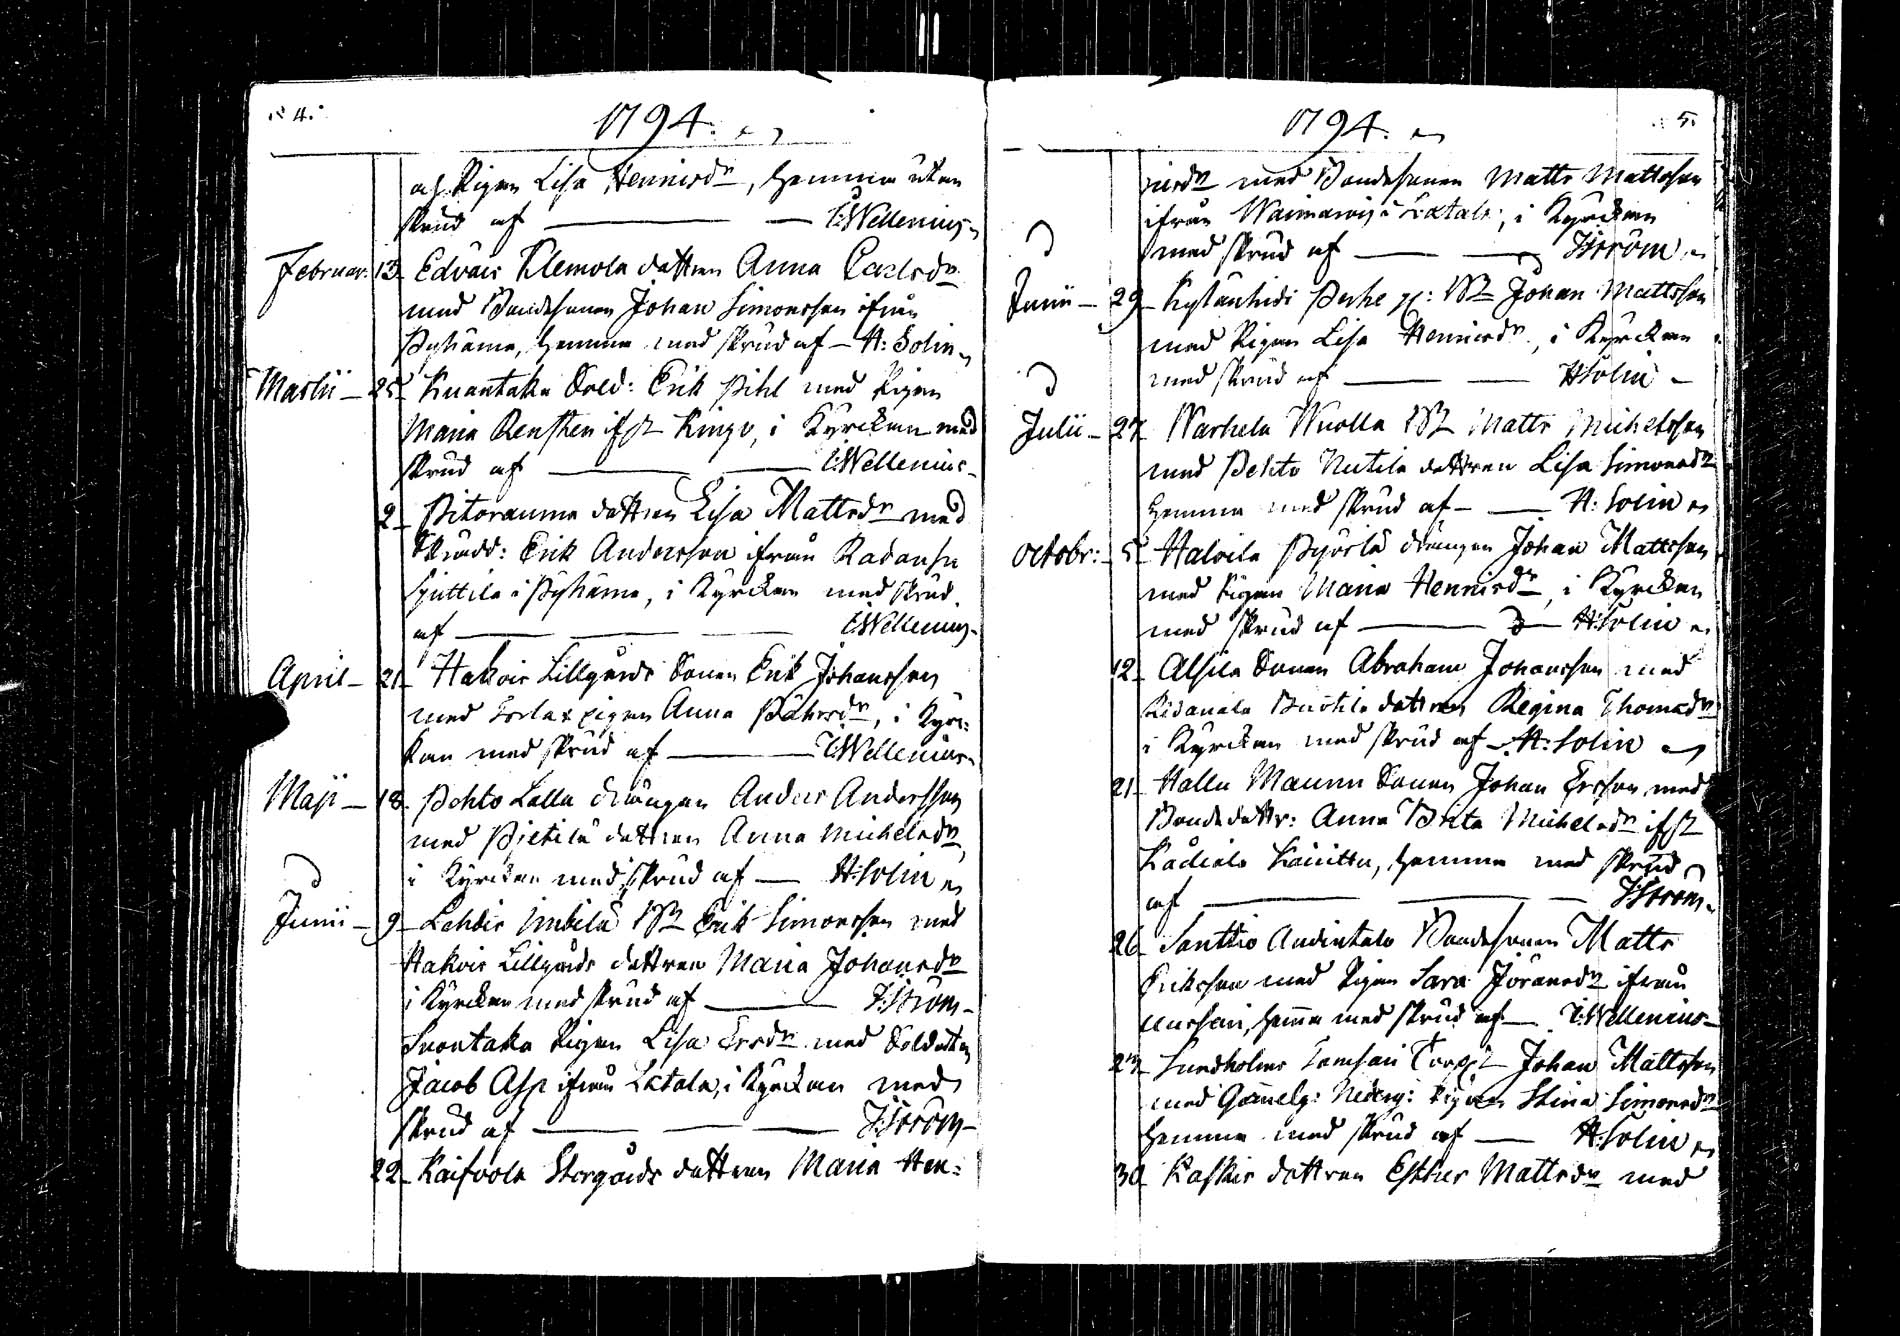 4.
1794.
och Pigan Lisa Henricsdr, hemma utan
skrud af — — I:Wellenius
Februar. 13 Edväis Klemola dottren Anna Carlsdr
med Bondesonen Johan Simonsson ifrån
Pyhäma, hemma med skrud af — H: Solin
Martii — 25 Knaataka Sold: Erik Pihl med Pigan
Maria ifr , i Kyrckan med
skrud af — — I:Wellenius
2 Pitorauma dottren Lisa Mattsdr med
: Erik Andersson ifrån
i Pyhäma, i Kyrckan med skrud
af — — — I:Wellenius
April — 21 Hakois Lillgårds Sonen Erik Johansson
med pigan Anna , i Kyrc-
kan med skrud af — I:Wellenius
Maji — 18 Pehto Lalla drängen Anders Andersson
med Pietilä dottren Anna Michelsdr
i Kyrckan med skrud af — H:Solin
Junii — 9 Lahdis B Erik Simonsson med
Hakois Lillgårds dottren Maria Johansdr
i Kyrckan med skrud af — I:Ström
Suontaka Pigan Lisa Ersdr med Soldaten
Jacob Asp ifrån Letala, i Kyrckan med
skrud af — — — I:Ström
22 Kaifvola Storgårds dottren Maria Hen-
1794.
5.
ricsdr med Bondesonen Matts Mattsson
ifrån i Letala, i Kyrckan
med skrud af — — I:Ström
Junii — 29 B Johan Mattsson
med Pigan Lisa Henricsdr, i Kyrckan
med skrud af — — H:Solin
Julii — 27 Warhela Wuolla B Matts Michelsson
med Pehto Nutila dottren Lisa Simonsdr
hemma med skrud af — — H: Solin
Octobr: — 5 Haloila Pyörlä drängen Johan Mattsson
med Pigan Maria Henricsdr, i Kyrckan
med skrud af — — H:Solin
12 Alsila Sonen Abraham Johansson med
dottren Regina Thomasdr
i Kyrckan med skrud af — H: Solin
21 Hallu Maunu Sonen Johan Ersson med
Bondedottr: Anna Brita Michelsdr ifr
, hemma med skrud
af — — — I:Ström
26 Santtio Andintalo Bondesonen Matts
Eriksson med Pigan Sara Jöransdr ifrån
, hemma med skrud af — I:Wellenius
27 Sundholms Torp Johan Mattsson
med Gamelg: Nederg: Pigan Stina Simonsdr
hemma med skrud af — H:Solin
30 Kaskis dottren Esther Mattsdr med